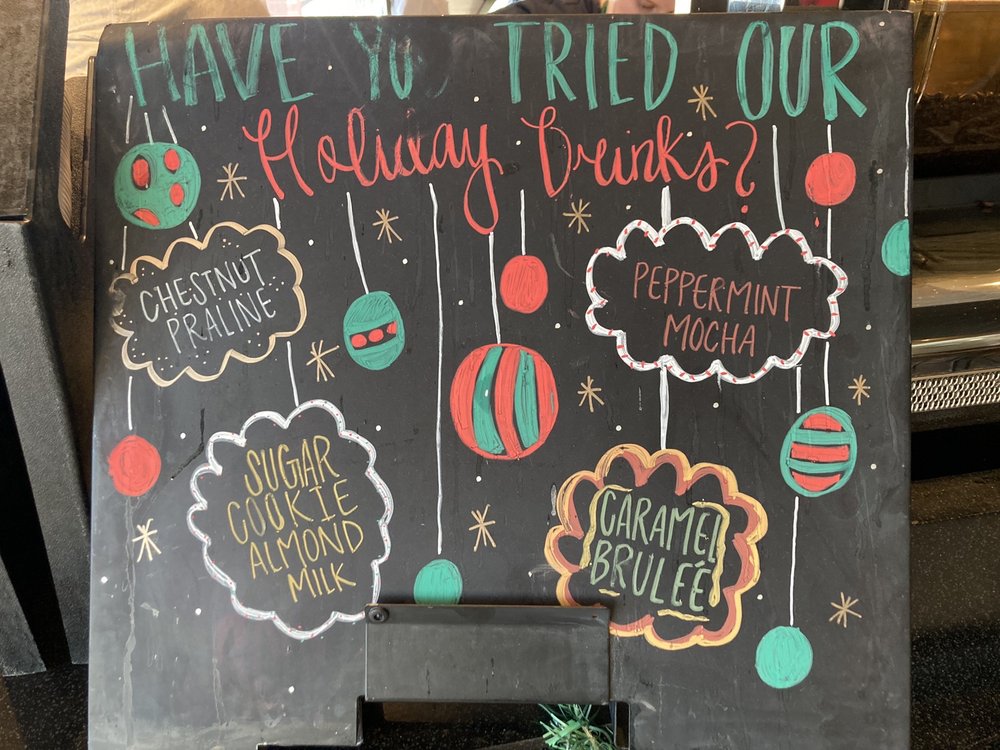 HAVE YO TRIED OUR
Holiday Drinks?
CHESTNUT
PRALINE
PEPPERMINT
MOCHA
SUGAR
COOKIE
ALMOND
MILK
CARAMEL
BRULEÉ